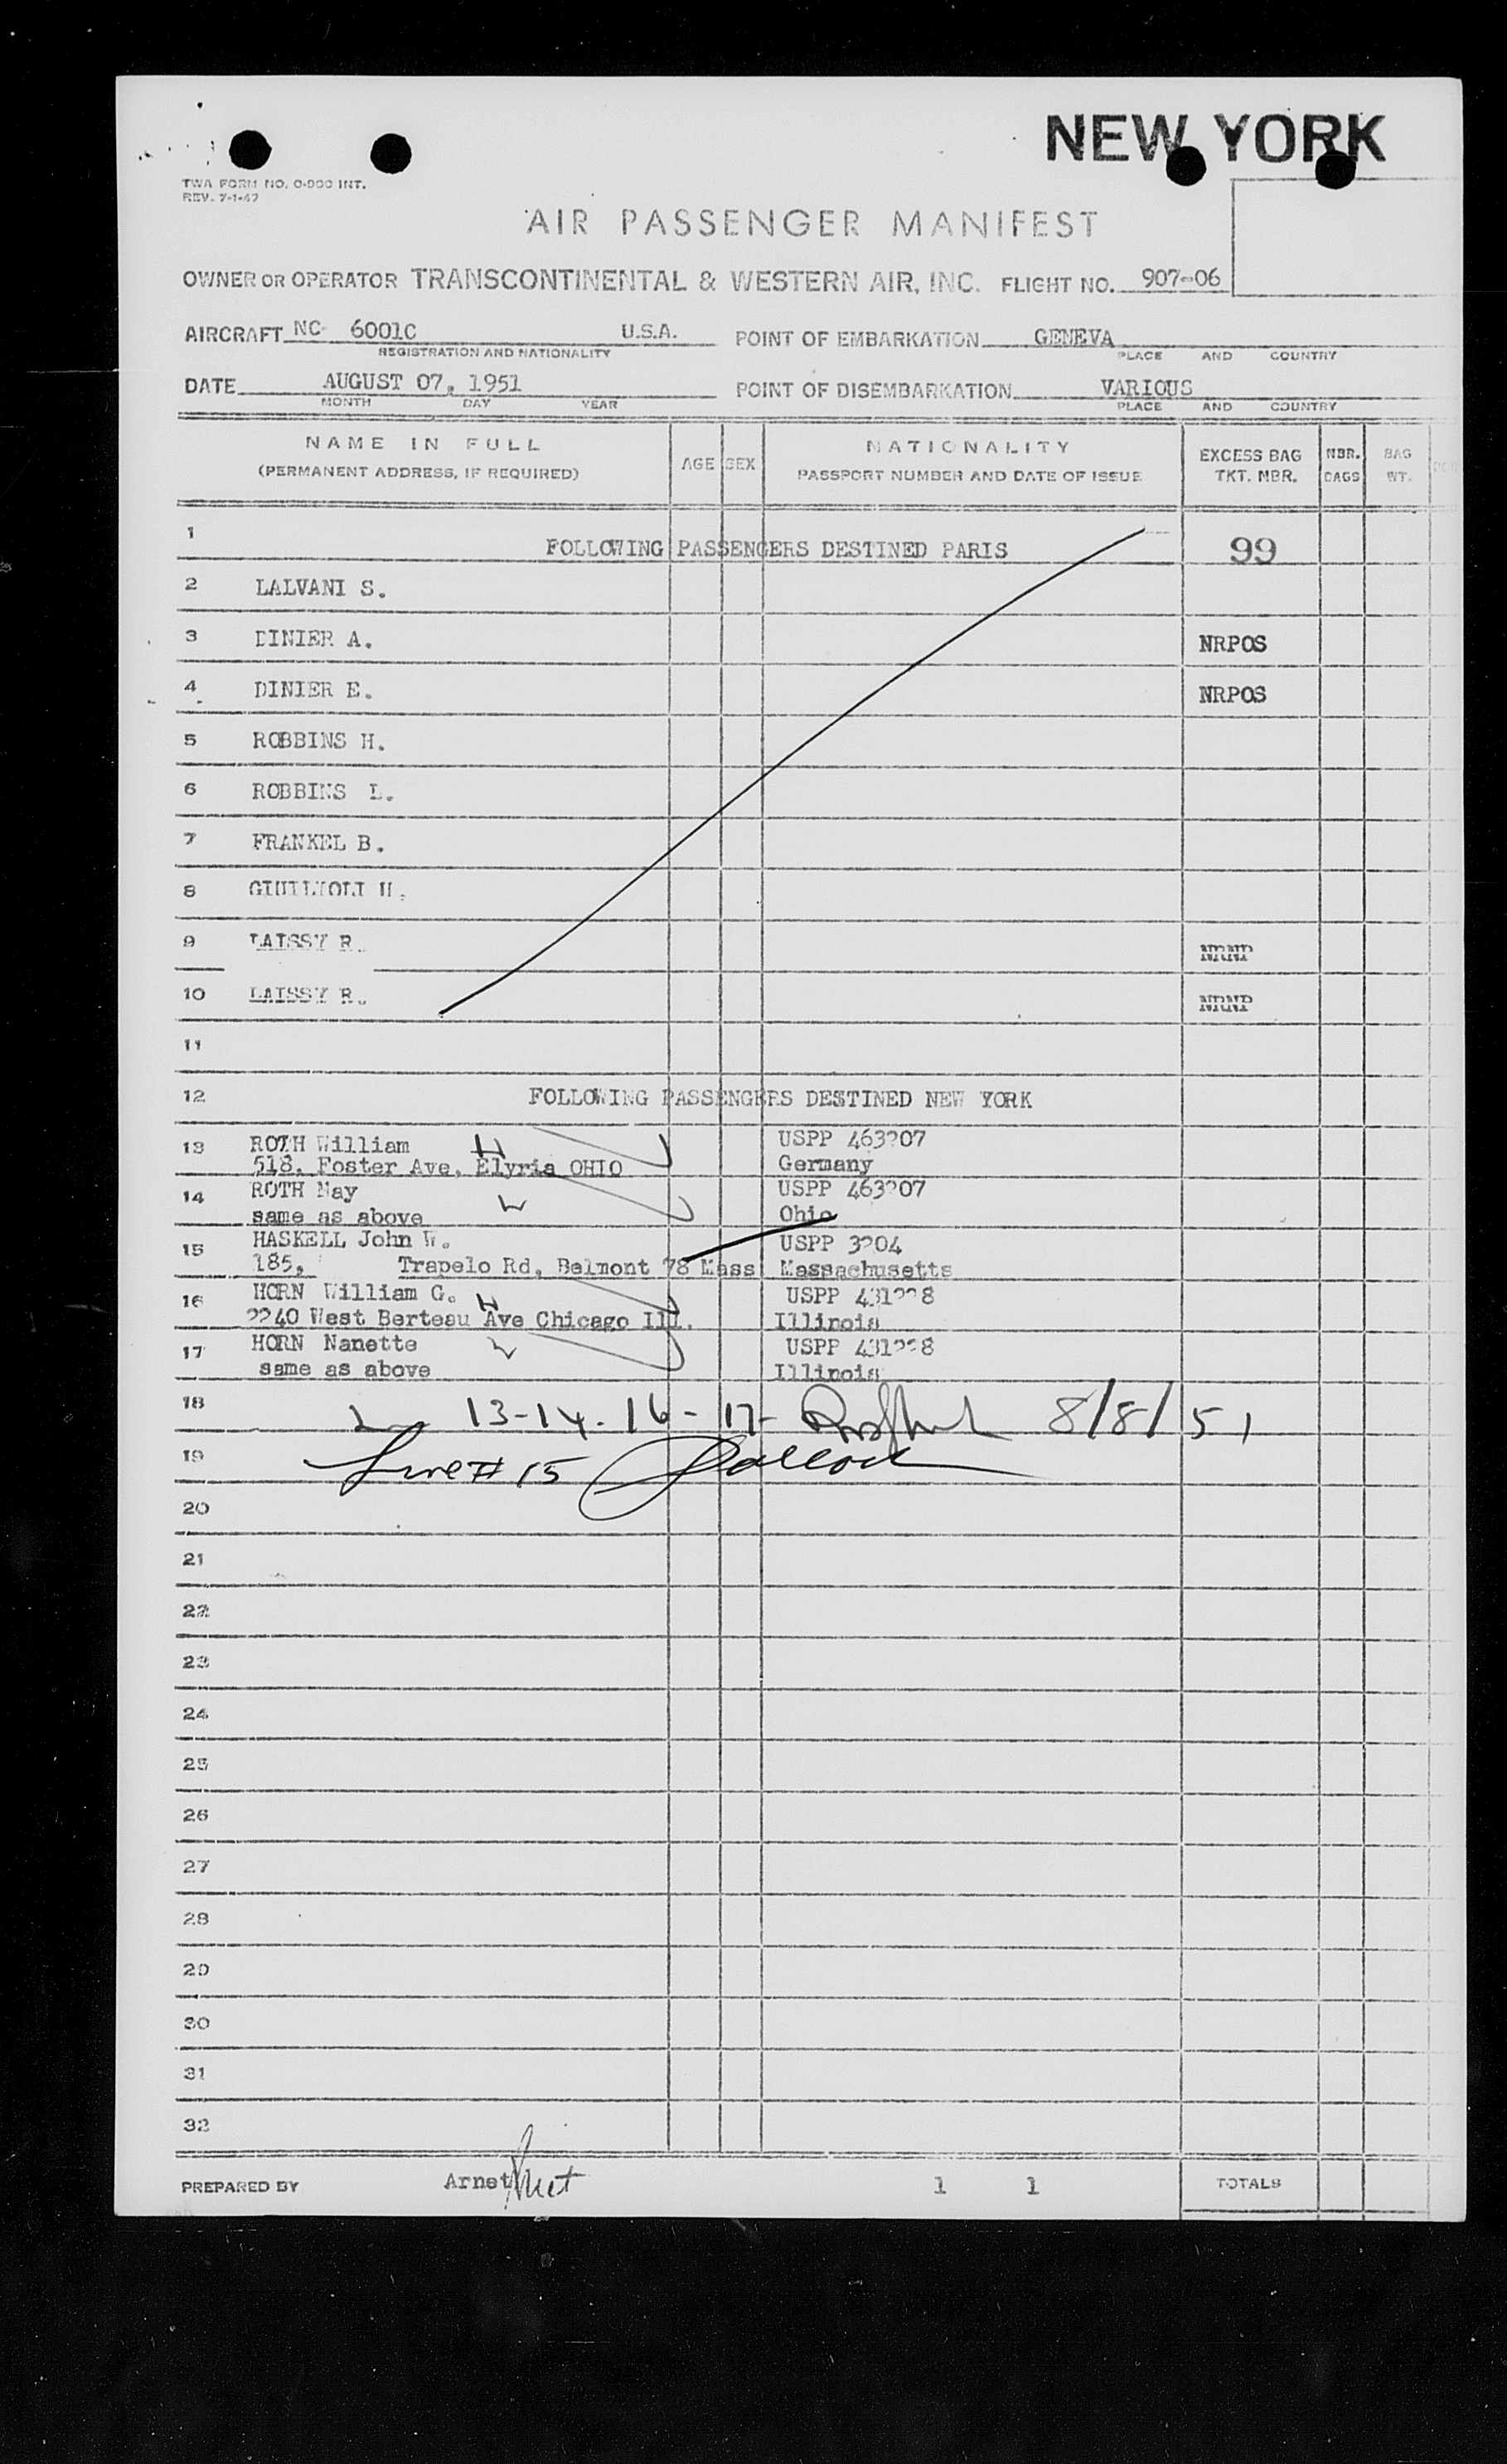 NEW YORK
TWA FORM NO. O-900 INT.
REV. 7-1-47
AIR PASSENGER MANIFEST
OWNER OR OPERATOR TRANSCONTINENTAL & WESTERN AIR, INC. FLIGHT NO. 907-06
AIRCRAFT NC 6001C U.S.A. POINT OF EMBARKATION GENEVA
REGISTRATION AND NATIONALITY PLACE AND COUNTRY
DATE AUGUST 07, 1951 POINT OF DISEMBARKATION VARIOUS
MONTH DAY YEAR PLACE AND COUNTRY
NAME IN FULL AGE SEX NATIONALITY EXCESS BAG NBR. BAG
(PERMANENT ADDRESS, IF REQUIRED) PASSPORT NUMBER AND DATE OF ISSUE TKT. NBR. BAGS WT.
1 FOLLOWING PASSENGERS DESTINED PARIS 99
2 LALVANI S.
3 DINIER A. NRPOS
4 DINIER E. NRPOS
5 ROBBINS H.
6 ROBBINS L.
7 FRANKEL B.
8
9 LAISSY R.
10 LAISSY R.
11
12 FOLLOWING PASSENGERS DESTINED NEW YORK
13 ROTH William USPP
518, Foster Ave, Elyria OHIO Germany
14 ROTH May USPP
same as above Ohio
15 HASKELL John W. USPP
185, Trapelo Rd, Belmont 78 Mass Massachusetts
16 HORN William G. USPP
2240 West Berteau Ave Chicago Ill. Illinois
17 HORN Nanette USPP
same as above Illinois
18 13-14-16-17- 8/8/51
19 Line # 15
20
21
22
23
24
25
26
27
28
29
30
31
32
PREPARED BY Arnet 1 1 TOTALS